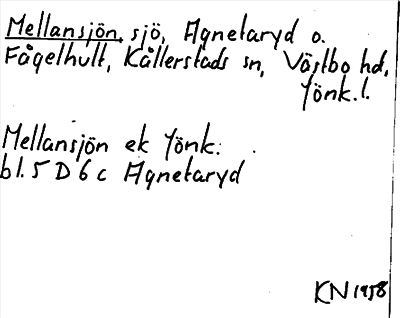 Mellansjön, sjö, Agnetaryd o.
Fågelhult, Kållerstads sn, Västbo hd,
Jönk.l.
Mellansjön ek Jönk.
bl. 5 D 6 c Agnetaryd
KN 1958